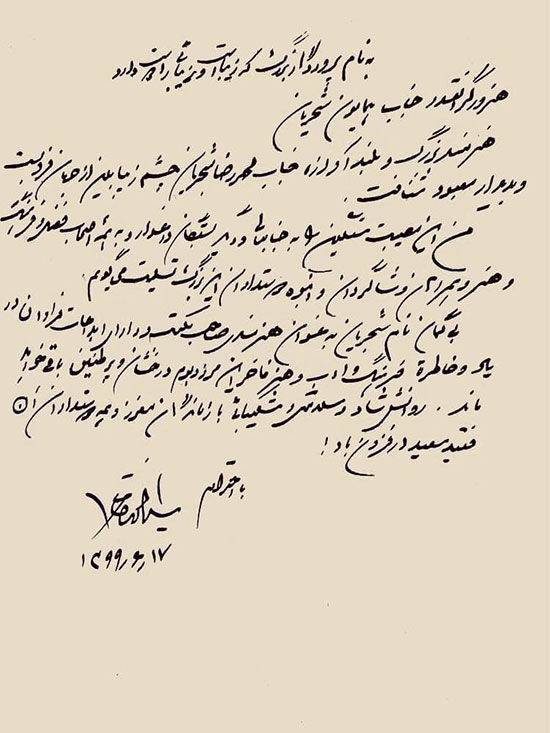 به نام پروردگار بزرگ که زیباست و زیبائی را دوست دارد
هنرور گرانقدر جناب همایون شجریان
هنرمند بزرگ و بلند آوازه جناب محمدرضا شجریان چشم زیبابین از جهان فروبست
و بدیدار معبود شتافت.
من این مصیبت سنگین را به جنابعالی و دیگر بستگان داغدار و به همه اصحاب فضل و فرهنگ
و هنر و شاگردان و انبوه دوستداران این بزرگ تسلیت می گویم.
بی گمان نام شجریان به عنوان هنرمندی صاحب سبک و دارای ابداعات فراوان در
یاد و خاطرهٔ فرهنگ و ادب و هنر فاخر این مرز و بوم درخشان و پرطنین باقی خواهد
ماند. روانش شاد و سلامتی و شکیبائی بازماندگان معزز و همه دوستداران آن
فقید سعید در فزون باد!
با احترام
۱۳۹۹٫۶٫۱۷